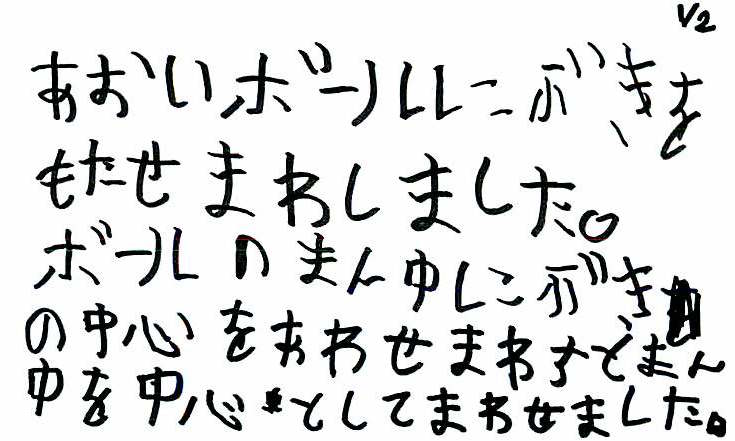 1/2
あおいボールにぶきを
もたせまわしました。
ボールのまん中にぶき
の中心をあわせまわすとまん
中を中心としてまわせました。